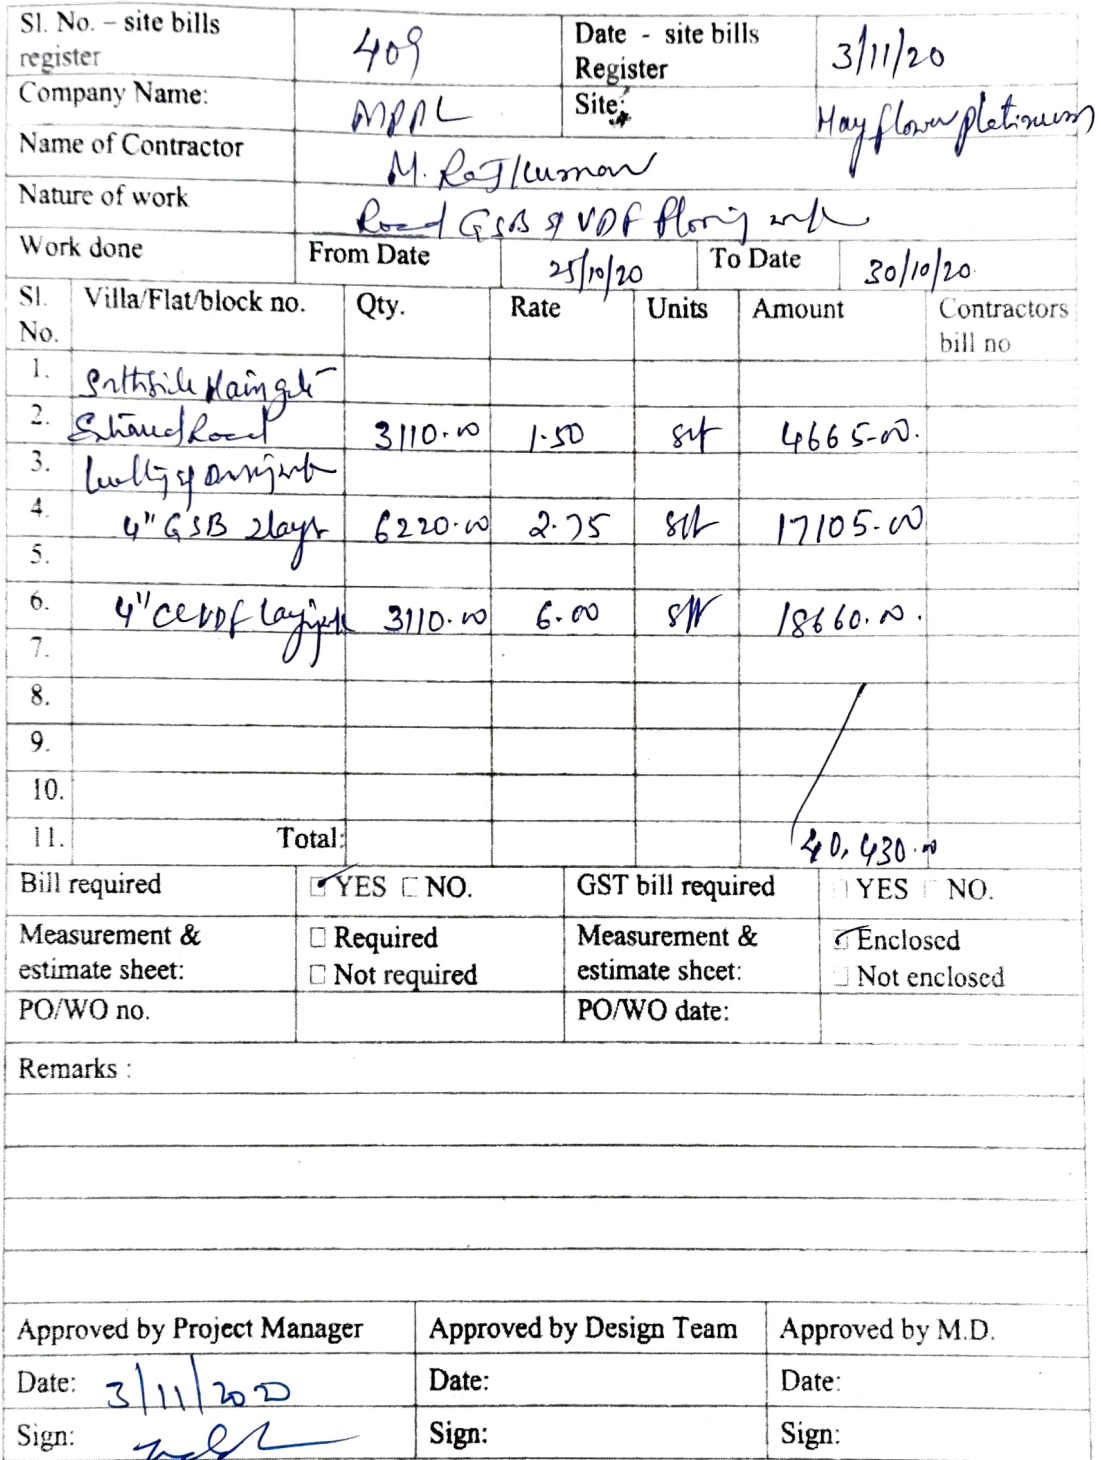 Sl. No. – site bills register 409 Date - site bills Register 3/11/20
Company Name: MPPL Site: Mayflower platinum
Name of Contractor M. Rajkumar
Nature of work Road GSB & VDF flooring work
Work done From Date 25/10/20 To Date 30/10/20
Sl. No. Villa/Flat/block no. Qty. Rate Units Amount Contractors bill no
1. Main gate
2. Road 3110.00 1.50 sft 4665-00.
3.
4. 4" GSB 2 layer 6220.00 2.75 sft 17105-00
5.
6. 4" CC VDF laying 3110.00 6.00 sft 18660.00.
7.
8.
9.
10.
11. Total: 40,430.00
Bill required YES NO. GST bill required YES NO.
Measurement & estimate sheet: Required Not required Measurement & estimate sheet: Enclosed Not enclosed
PO/WO no. PO/WO date:
Remarks :
Approved by Project Manager Approved by Design Team Approved by M.D.
Date: 3/11/2020 Date: Date:
Sign: Sign: Sign: